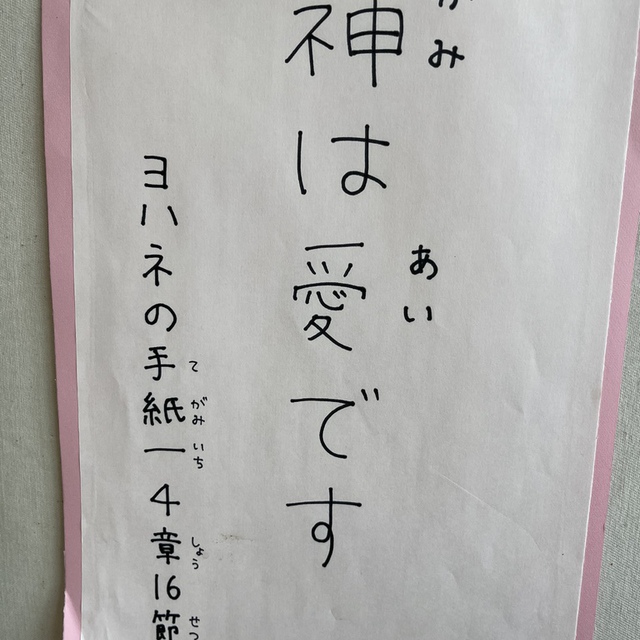 神は愛です
かみ
あい
ヨハネの手紙一4章16節
てがみいち
しょう
せつ